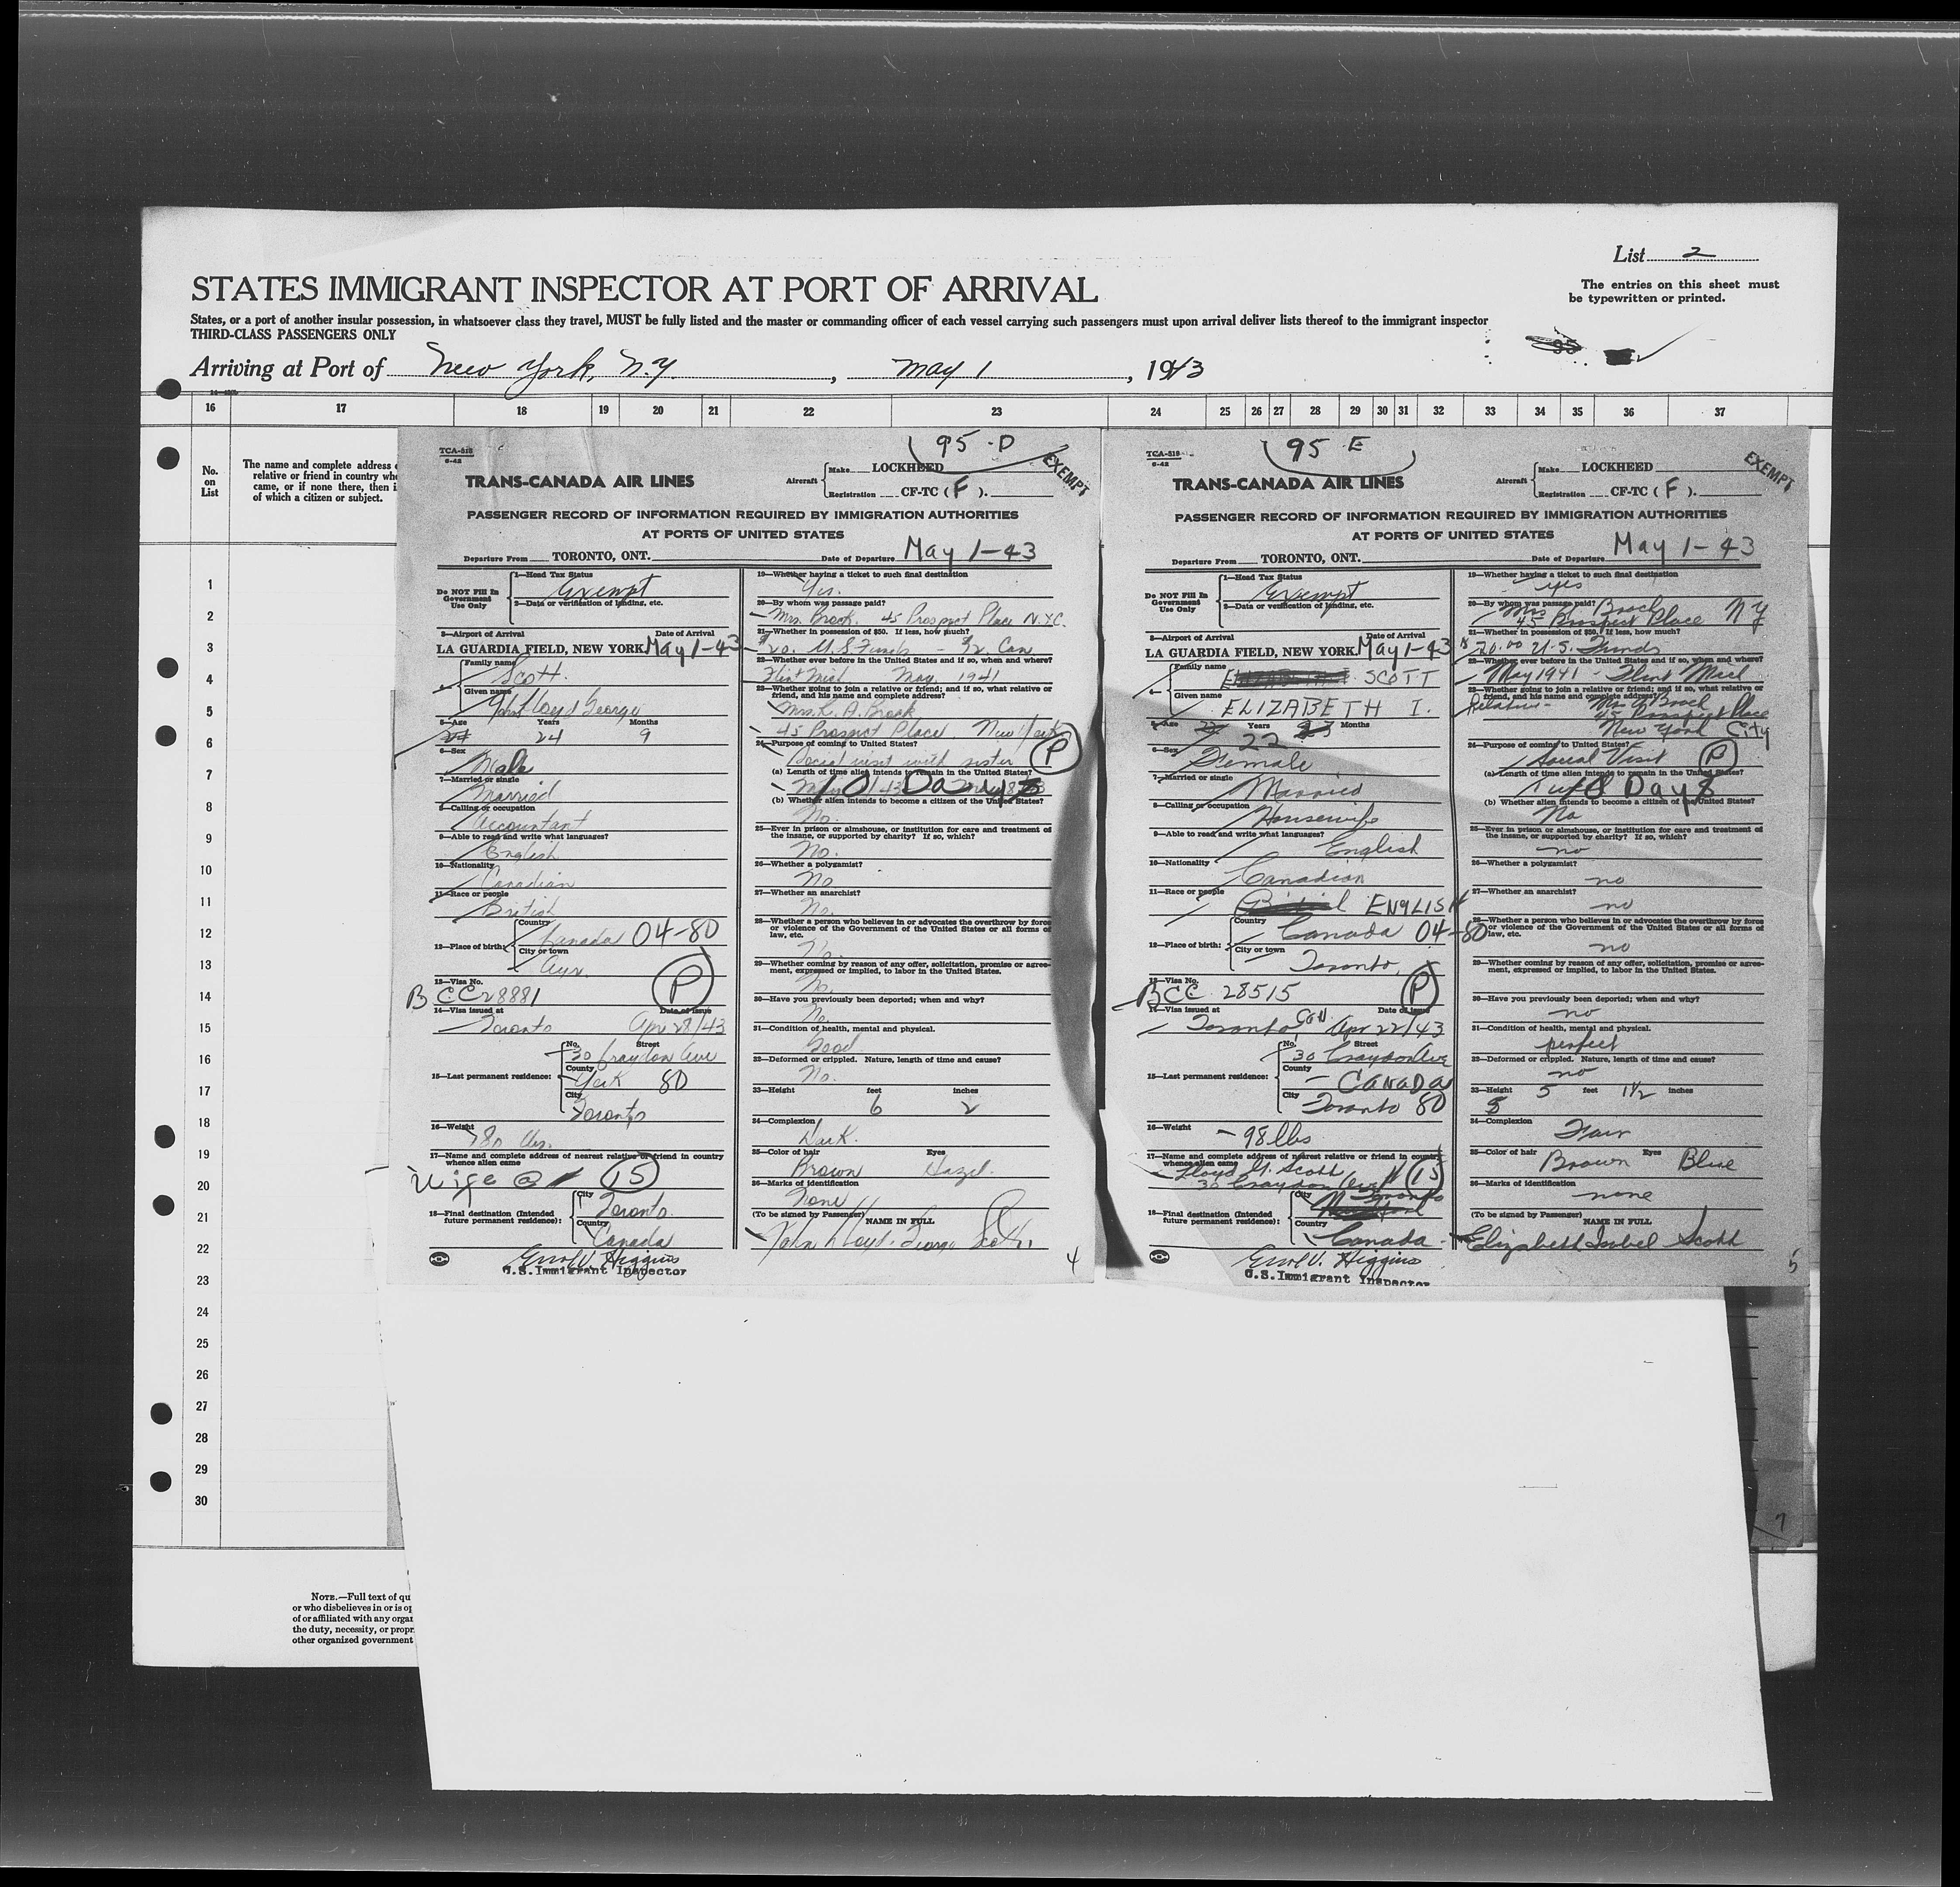 List 2
The entries on this sheet must
be typewritten or printed.
STATES IMMIGRANT INSPECTOR AT PORT OF ARRIVAL
States, or a port of another insular possession, in whatsoever class they travel, MUST be fully listed and the master or commanding officer of each vessel carrying such passengers must upon arrival deliver lists thereof to the immigrant inspector
THIRD-CLASS PASSENGERS ONLY
Arriving at Port of New York, N.Y. , May 1 , 1943
16 17 18 19 20 21 22 23 24 25 26 27 28 29 30 31 32 33 34 35 36 37
No.
on
List
The name and complete address
relative or friend in country
came, or if none there, then
of which a citizen or subject.
1
2
3
4
5
6
7
8
9
10
11
12
13
14
15
16
17
18
19
20
21
22
23
24
25
26
27
28
29
30
NOTE.—Full text of
or who disbelieves in or is
of or affiliated with any
the duty, necessity, or
other organized government
95 D
EXEMPT
TCA-518
6-42
TRANS-CANADA AIR LINES
Aircraft Make LOCKHEED
Registration CF-TC ( F ).
PASSENGER RECORD OF INFORMATION REQUIRED BY IMMIGRATION AUTHORITIES
AT PORTS OF UNITED STATES
Departure From TORONTO, ONT. Date of Departure May 1-43
Do NOT Fill In
Government
Use Only
1—Head Tax Status
Exempt
2—Data or verification of landing, etc.
3—Airport of Arrival Date of Arrival
LA GUARDIA FIELD, NEW YORK. May 1-43
4— Family name
Scott.
Given name
John Lloyd George
5—Age Years Months
24 9
6—Sex
Male
7—Married or single
Married
8—Calling or occupation
Accountant
9—Able to read and write what languages?
English
10—Nationality
Canadian
11—Race or people
British
12—Place of birth: Country
Canada 04-80
City or town
Ayr.
13—Visa No.
BCC 28881 P
14—Visa issued at Date of issue
Toronto Apr 28/43
15—Last permanent residence: No. Street
30 Craydon Ave
County
York 80
City
Toronto
16—Weight
180 lbs.
17—Name and complete address of nearest relative or friend in country
whence alien came
Wife @ 15
18—Final destination (Intended
future permanent residence): City
Toronto.
Country
Canada
Errol V. Higgins
U.S. Immigrant Inspector
19—Whether having a ticket to such final destination
Yes.
20—By whom was passage paid?
Mrs. Brock. 45 Prospect Place N.Y.C.
21—Whether in possession of $50. If less, how much?
$20. U.S Funds - $2. Can
22—Whether ever before in the United States and if so, when and where?
Flint Mich May. 1941
23—Whether going to join a relative or friend; and if so, what relative or
friend, and his name and complete address?
Mrs. L. A. Brock
45 Prospect Place. New York
24—Purpose of coming to United States?
Social visit with sister P
(a) Length of time alien intends to remain in the United States?
10 Days
(b) Whether alien intends to become a citizen of the United States?
No.
25—Ever in prison or almshouse, or institution for care and treatment of
the insane, or supported by charity? If so, which?
No.
26—Whether a polygamist?
No
27—Whether an anarchist?
No.
28—Whether a person who believes in or advocates the overthrow by force
or violence of the Government of the United States or all forms of
law, etc.
No.
29—Whether coming by reason of any offer, solicitation, promise or agree-
ment, expressed or implied, to labor in the United States.
No.
30—Have you previously been deported; when and why?
No.
31—Condition of health, mental and physical.
Good
32—Deformed or crippled. Nature, length of time and cause?
No.
33—Height feet inches
6 2
34—Complexion
Dark.
35—Color of hair Eyes
Brown Hazel.
36—Marks of identification
None
(To be signed by Passenger) NAME IN FULL
John Lloyd George Scott.
4
95 E
EXEMPT
TCA-518
6-42
TRANS-CANADA AIR LINES
Aircraft Make LOCKHEED
Registration CF-TC ( F ).
PASSENGER RECORD OF INFORMATION REQUIRED BY IMMIGRATION AUTHORITIES
AT PORTS OF UNITED STATES
Departure From TORONTO, ONT. Date of Departure May 1-43
Do NOT Fill In
Government
Use Only
1—Head Tax Status
Exempt
2—Data or verification of landing, etc.
3—Airport of Arrival Date of Arrival
LA GUARDIA FIELD, NEW YORK. May 1-43
4— Family name
SCOTT
Given name
ELIZABETH I.
5—Age Years Months
22
6—Sex
Female
7—Married or single
Married
8—Calling or occupation
Housewife
9—Able to read and write what languages?
English
10—Nationality
Canadian
11—Race or people
ENGLISH
12—Place of birth: Country
Canada 04-80
City or town
Toronto,
13—Visa No.
BCC 28515 P
14—Visa issued at Date of issue
Toronto Can. Apr 22/43
15—Last permanent residence: No. Street
30 Craydon Ave
County
CANADA
City
Toronto 80
16—Weight
98 lbs
17—Name and complete address of nearest relative or friend in country
whence alien came
Lloyd G. Scott H 15
30 Craydon Ave
18—Final destination (Intended
future permanent residence): City
Toronto
Country
Canada
Errol V. Higgins
U.S. Immigrant Inspector
19—Whether having a ticket to such final destination
yes
20—By whom was passage paid?
Mrs Brock
45 Prospect Place N Y
21—Whether in possession of $50. If less, how much?
$20.00 U.S. Funds
22—Whether ever before in the United States and if so, when and where?
May 1941 - Flint Mich
23—Whether going to join a relative or friend; and if so, what relative or
friend, and his name and complete address?
Relative - Mrs Brock
45 Prospect Place
New York City
24—Purpose of coming to United States?
Social Visit P
(a) Length of time alien intends to remain in the United States?
Days
(b) Whether alien intends to become a citizen of the United States?
No
25—Ever in prison or almshouse, or institution for care and treatment of
the insane, or supported by charity? If so, which?
no
26—Whether a polygamist?
no
27—Whether an anarchist?
no
28—Whether a person who believes in or advocates the overthrow by force
or violence of the Government of the United States or all forms of
law, etc.
no
29—Whether coming by reason of any offer, solicitation, promise or agree-
ment, expressed or implied, to labor in the United States.
30—Have you previously been deported; when and why?
no
31—Condition of health, mental and physical.
perfect
32—Deformed or crippled. Nature, length of time and cause?
no
33—Height 5 feet 1½ inches
5
34—Complexion
Fair
35—Color of hair Eyes
Brown Blue
36—Marks of identification
none
(To be signed by Passenger) NAME IN FULL
Elizabeth Isobel Scott
5
7